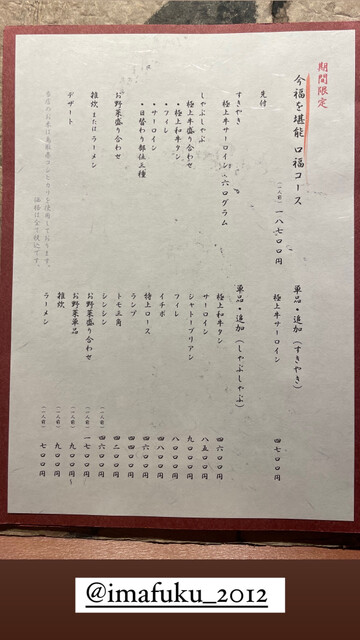 期間限定
今福を堪能 口福コース
(一人前) 一八七〇〇円
先付
すきやき
極上牛サーロイン 六〇グラム
しゃぶしゃぶ
極上牛盛り合わせ
・極上和牛タン
・フィレ
・サーロイン
・日替わり部位三種
お野菜盛り合わせ
雑炊 または ラーメン
デザート
使用しております。
価格は全て税込です。
単品・追加 (すきやき)
極上牛サーロイン 四七〇〇円
単品・追加 (しゃぶしゃぶ)
極上和牛タン 四六〇〇円
サーロイン 八五〇〇円
シャトーブリアン 九〇〇〇円
フィレ 八〇〇〇円
イチボ 四八〇〇円
特上ロース 四六〇〇円
ランプ 四六〇〇円
トモ三角 四二〇〇円
シンシン (一人前) 四六〇〇円
お野菜盛り合わせ (一人前) 一七〇〇円
お野菜単品 (一人前) 九〇〇円〜
雑炊 (一人前) 九〇〇円
ラーメン (一人前) 七〇〇円
@imafuku_2012